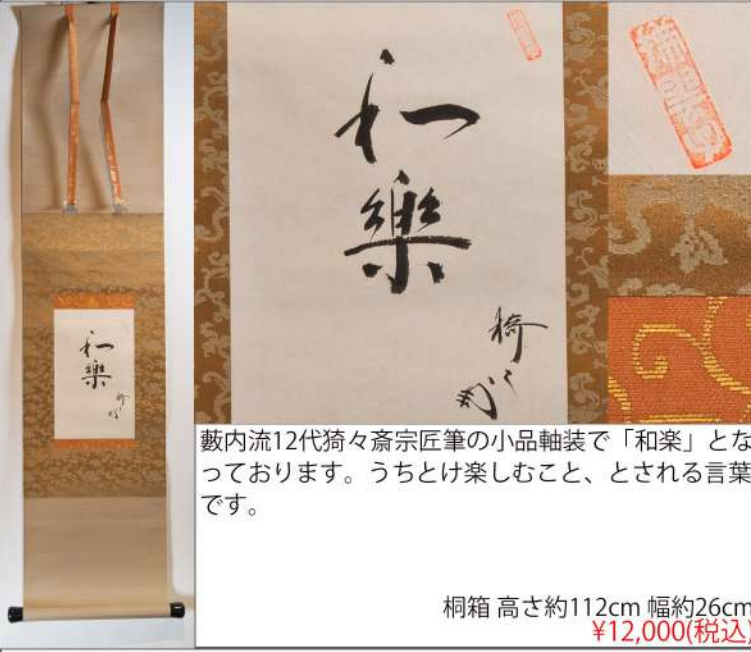 和
樂
猗々斎
和
樂
藪内流12代猗々斎宗匠筆の小品軸装で「和楽」とな
っております。うちとけ楽しむこと、とされる言葉
です。
桐箱 高さ約112cm 幅約26cm
¥12,000(税込)